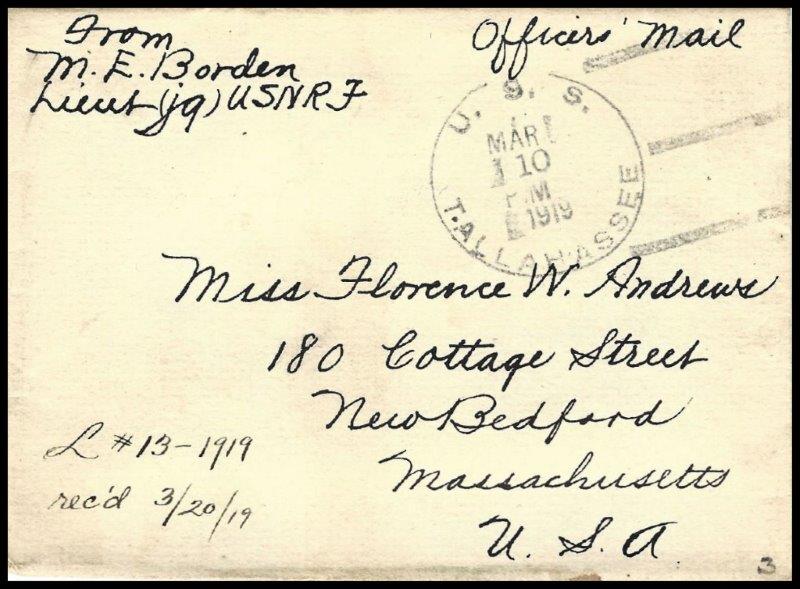 From
M. E. Borden
Lieut (jg) USNRF
Officers' Mail
U. S. S.
MAR
10
P.M
1919
TALLAHASSEE
Miss Florence W. Andrews
180 Cottage Street
New Bedford
Massachusetts
U. S. A
L #13-1919
rec'd 3/20/19
3